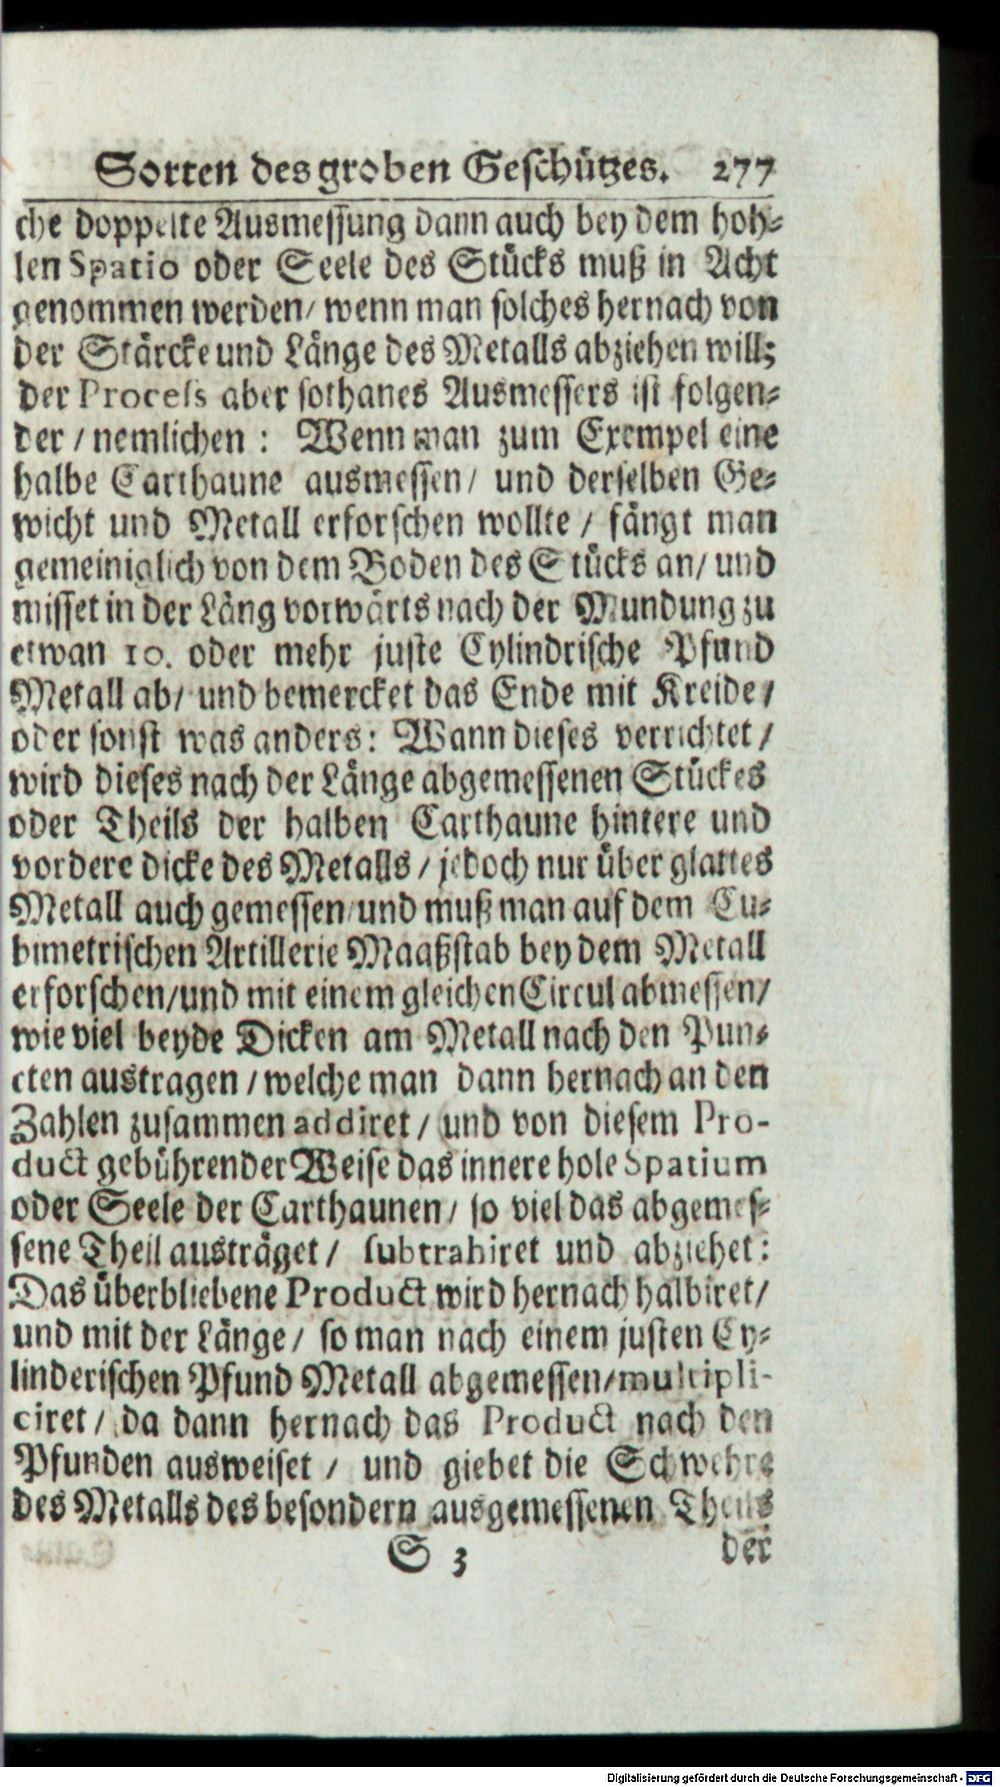 Sorten des groben Geschützes. 277
che doppelte Ausmessung dann auch bey dem hoh-
len Spatio oder Seele des Stücks muß in Acht
genommen werden/ wenn man solches hernach von
der Stärcke und Länge des Metalls abziehen will;
der Process aber sothanes Ausmessers ist folgen-
der / nemlichen : Wenn man zum Exempel eine
halbe Carthaune ausmessen/ und derselben Ge-
wicht und Metall erforschen wollte / fängt man
gemeiniglich von dem Boden des Stücks an/ und
misset in der Läng vorwärts nach der Mundung zu
etwan 10. oder mehr juste Cylindrische Pfund
Metall ab/ und bemercket das Ende mit Kreide /
oder sonst was anders: Wann dieses verrichtet /
wird dieses nach der Länge abgemessenen Stückes
oder Theils der halben Carthaune hintere und
vordere dicke des Metalls / jedoch nur über glattes
Metall auch gemessen/ und muß man auf dem Cu-
bimetrischen Artillerie Maaßstab bey dem Metall
erforschen/und mit einem gleichen Circul abmessen/
wie viel beyde Dicken am Metall nach den Pun-
cten austragen / welche man dann hernach an den
Zahlen zusammen addiret / und von diesem Pro-
duct gebührender Weise das innere hole Spatium
oder Seele der Carthaunen/ so viel das abgemes-
sene Theil austräget / subtrahiret und abziehet :
Das überbliebene Product wird hernach halbiret/
und mit der Länge / so man nach einem justen Cy-
linderischen Pfund Metall abgemessen/multipli-
ciret / da dann hernach das Product nach den
Pfunden ausweiset / und giebet die Schwehre
des Metalls des besondern ausgemessenen Theils
S 3 der
Digitalisierung gefördert durch die Deutsche Forschungsgemeinschaft - DFG